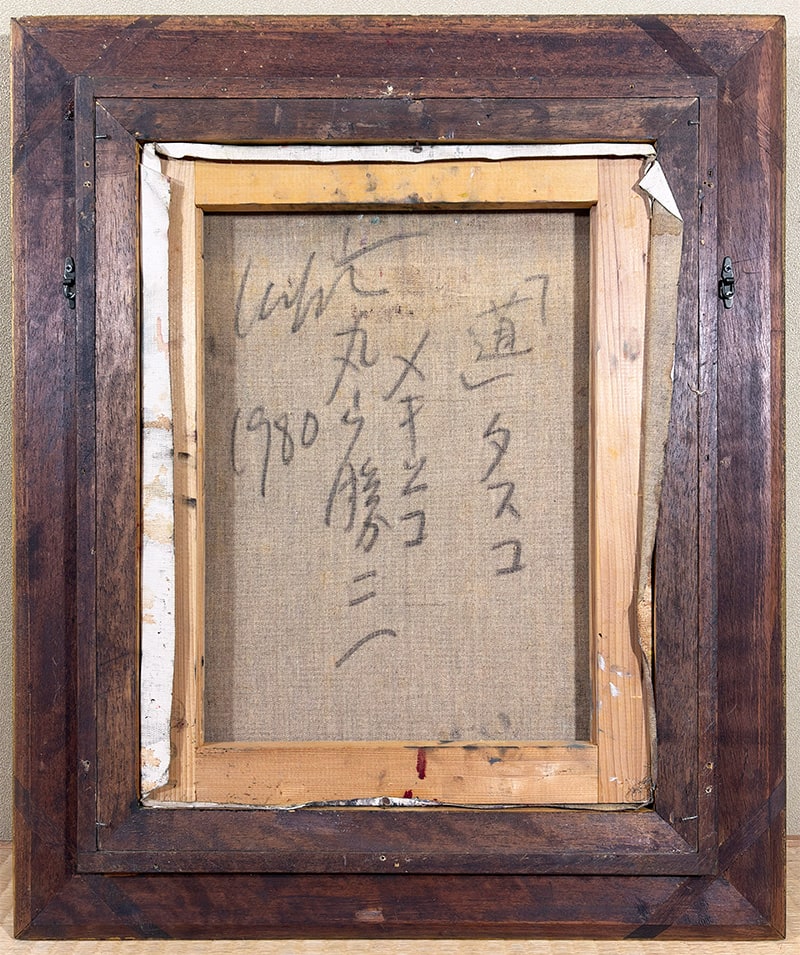 「道」タスコ
メキシコ
丸山勝三
1980